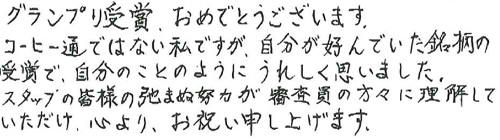 グランプリ受賞、おめでとうございます。
コーヒー通ではない私ですが、自分が好んでいた銘柄の
受賞で、自分のことのようにうれしく思いました。
スタッフの皆様の弛まぬ努力が審査員の方々に理解して
いただけ、心より、お祝い申し上げます。